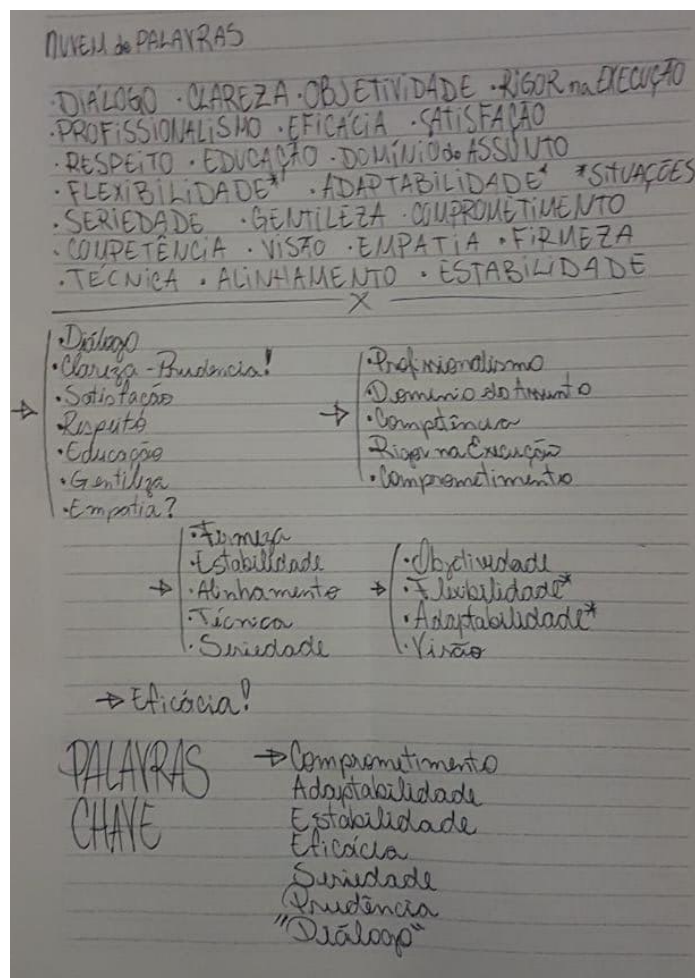 NUVEM de PALAVRAS
· DIÁLOGO · CLAREZA · OBJETIVIDADE · RIGOR na EXECUÇÃO
· PROFISSIONALISMO · EFICÁCIA · SATISFAÇÃO
· RESPEITO · EDUCAÇÃO · DOMÍNIO do ASSUNTO
· FLEXIBILIDADE* · ADAPTABILIDADE* *SITUAÇÕES
· SERIEDADE · GENTILEZA · COMPROMETIMENTO
· COMPETÊNCIA · VISÃO · EMPATIA · FIRMEZA
· TÉCNICA · ALINHAMENTO · ESTABILIDADE
X
· Diálogo
· Clareza - Prudência!
· Satisfação
→ · Respeito
· Educação
· Gentileza
· Empatia?
· Profissionalismo
· Domínio do Assunto
→ · Competência
Rigor na Execução
· Comprometimento
· Firmeza
· Estabilidade
→ · Alinhamento
· Técnica
· Seriedade
· Objetividade
→ · Flexibilidade*
· Adaptabilidade*
· Visão
→ Eficácia!
PALAVRAS
CHAVE
→ Comprometimento
Adaptabilidade
Estabilidade
Eficácia
Seriedade
Prudência
"Diálogo"